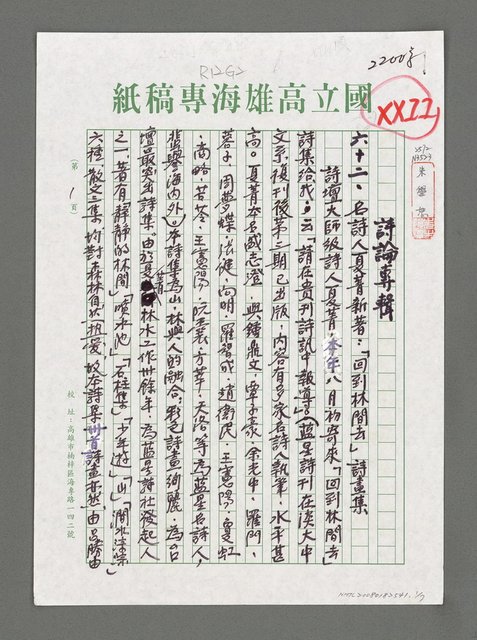 2200字
R12G2
XXII
國立高雄海專稿紙
朱學恕
詩論專輯
六十二、名詩人夏菁新著：「回到林間去」詩畫集
詩壇大師級詩人夏菁，本年八月初寄來「回到林間去」
詩集給我，云「請在貴刊詩訊中報導」（藍星詩刊在淡大中
文系復刊後第三期已出版，內容有多家名詩人執筆，水平甚
高。夏菁本名盛志澄，與鍾鼎文、覃子豪、余光中、羅門、
蓉子、周夢蝶、張健、向明、羅智成、趙衛民、王憲陽、夏虹
、商略、苦苓、王憲陽、阮囊、方莘、天洛等為藍星名詩人，
蜚譽海內外）本詩集為山林與人的融合，彩色詩畫絢麗，為台
壇最突出詩集，由於夏菁林水工作卅餘年，為藍星詩社發起人
之一，著有「靜靜的林間」「噴水池」「石柱集」「少年遊」「山」「澗水淙淙」
六種，散文三集，均對森林自然熱愛，故本詩集卅首詩畫亦然，由呂勝由
（第 1 頁）
校址：高雄市楠梓區海專路一四二號
NMTL20080182541. 1/7